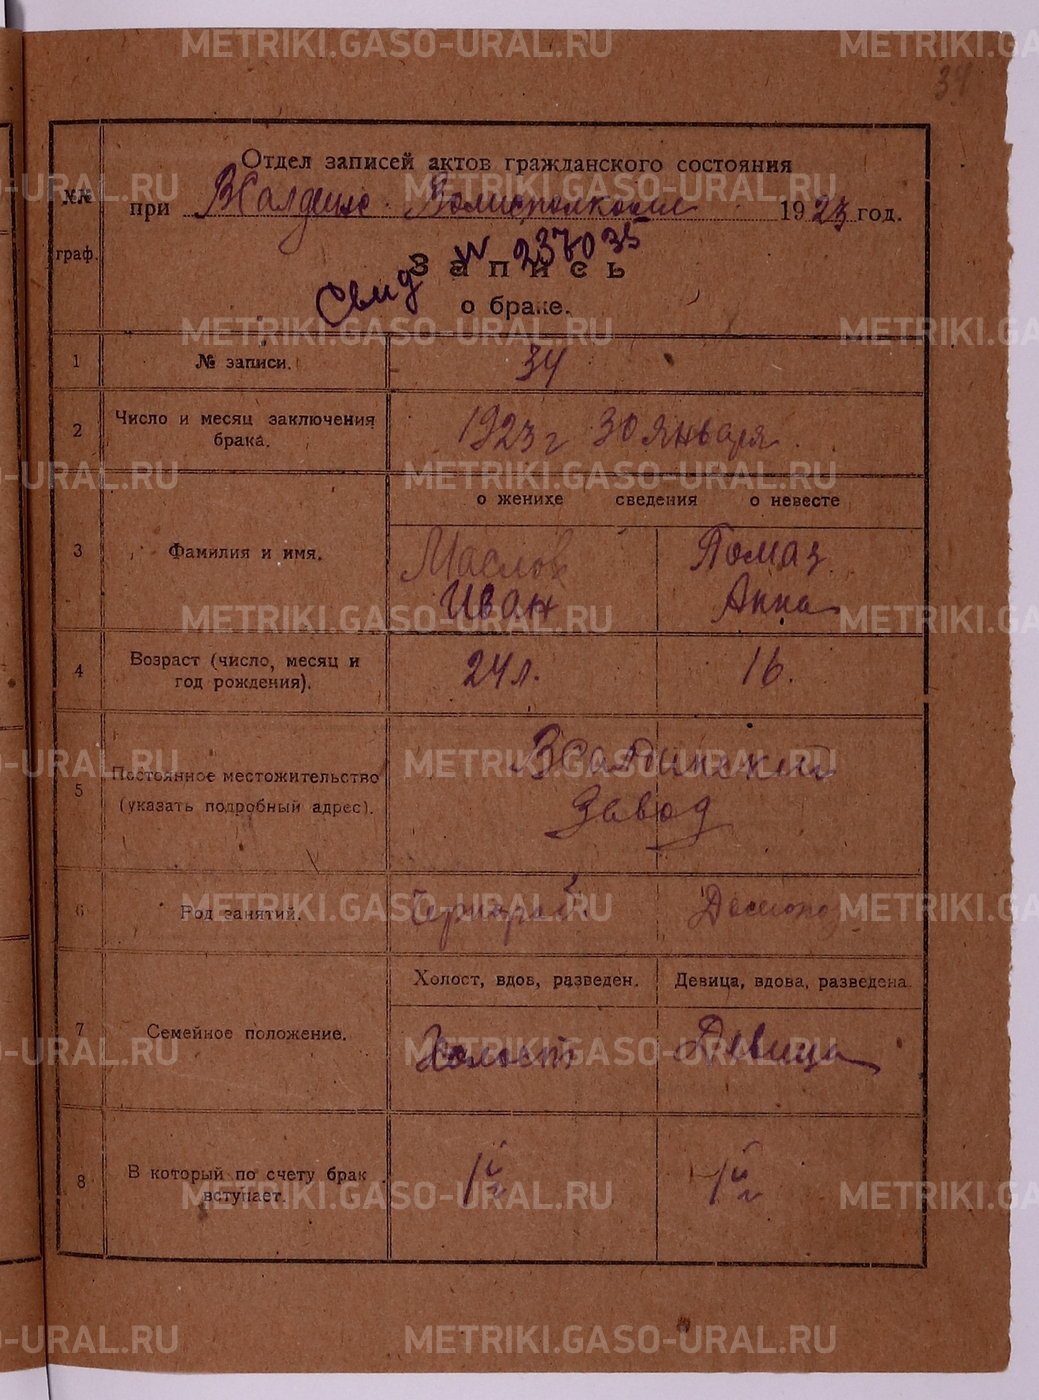 34
Отдел записей актов гражданского состояния
№№ граф.
при ВСалдинс. Волисполкоме 1923 год.
Свид № 237035
Запись
о браке.
1 № записи. 34
2 Число и месяц заключения брака. 1923 г 30 января.
о женихе сведения о невесте
3 Фамилия и имя. Маслов Помаз
Иван Анна
4 Возраст (число, месяц и год рождения). 24 л. 16.
5 Постоянное местожительство ВСалдинский
(указать подробный адрес). Завод
6 Род занятий. Домохоз
Холост, вдов, разведен. Девица, вдова, разведена.
7 Семейное положение. Холост Девица
8 В который по счету брак вступает. 1й 1й
METRIKI.GASO-URAL.RU